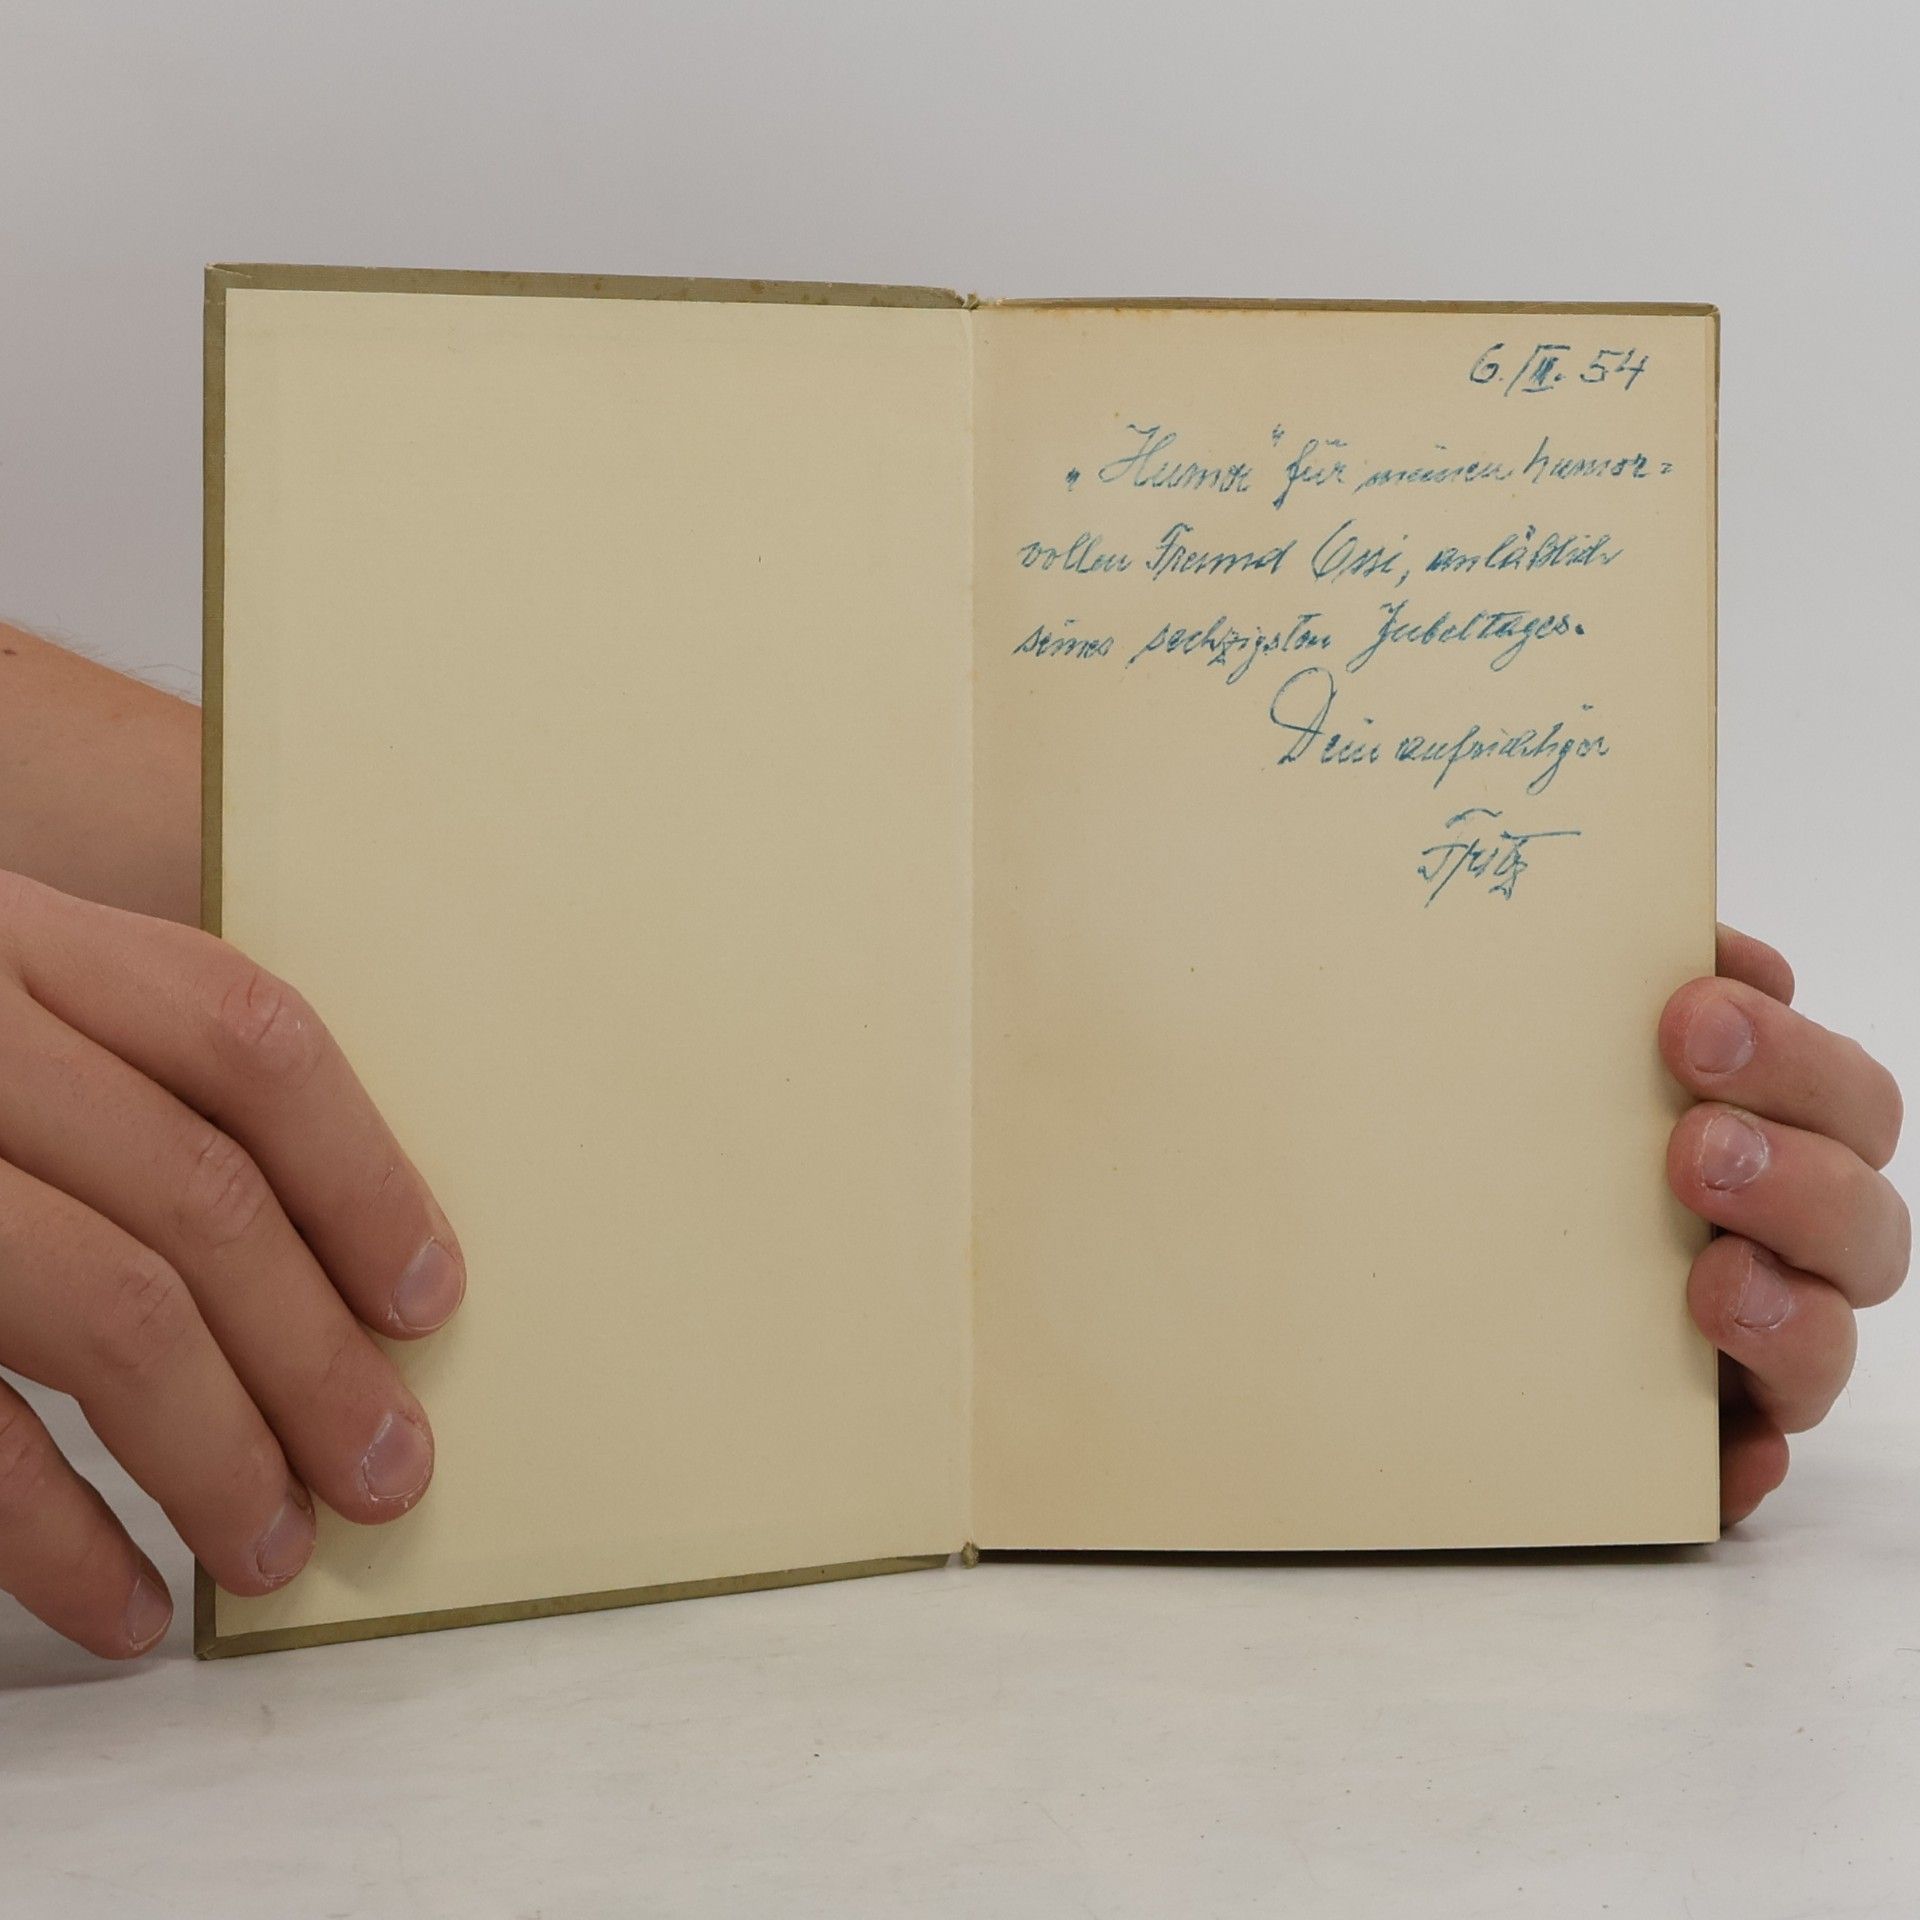 6./II. 54
„Humor" für meinen humor=
vollen Freund Ossi, anläßlich
seines sechzigsten Jubeltages.
Dein aufrichtiger
Fritz